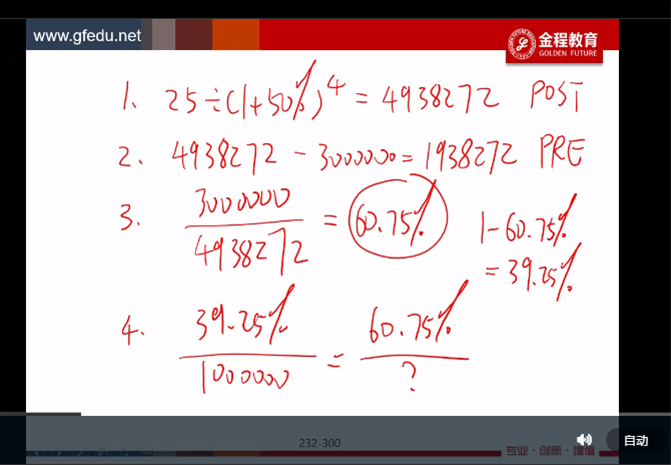 www.gfedu.net
金程教育
GOLDEN FUTURE
1. 25÷(1+50%)^4 = 4938272 POST
2. 4938272 - 3000000 = 1938272 PRE
3. 3000000/4938272 = 60.75%
1-60.75%
=39.25%
4. 39.25%/1000000 = 60.75%/?
232-300
专业·创新·增值
自动